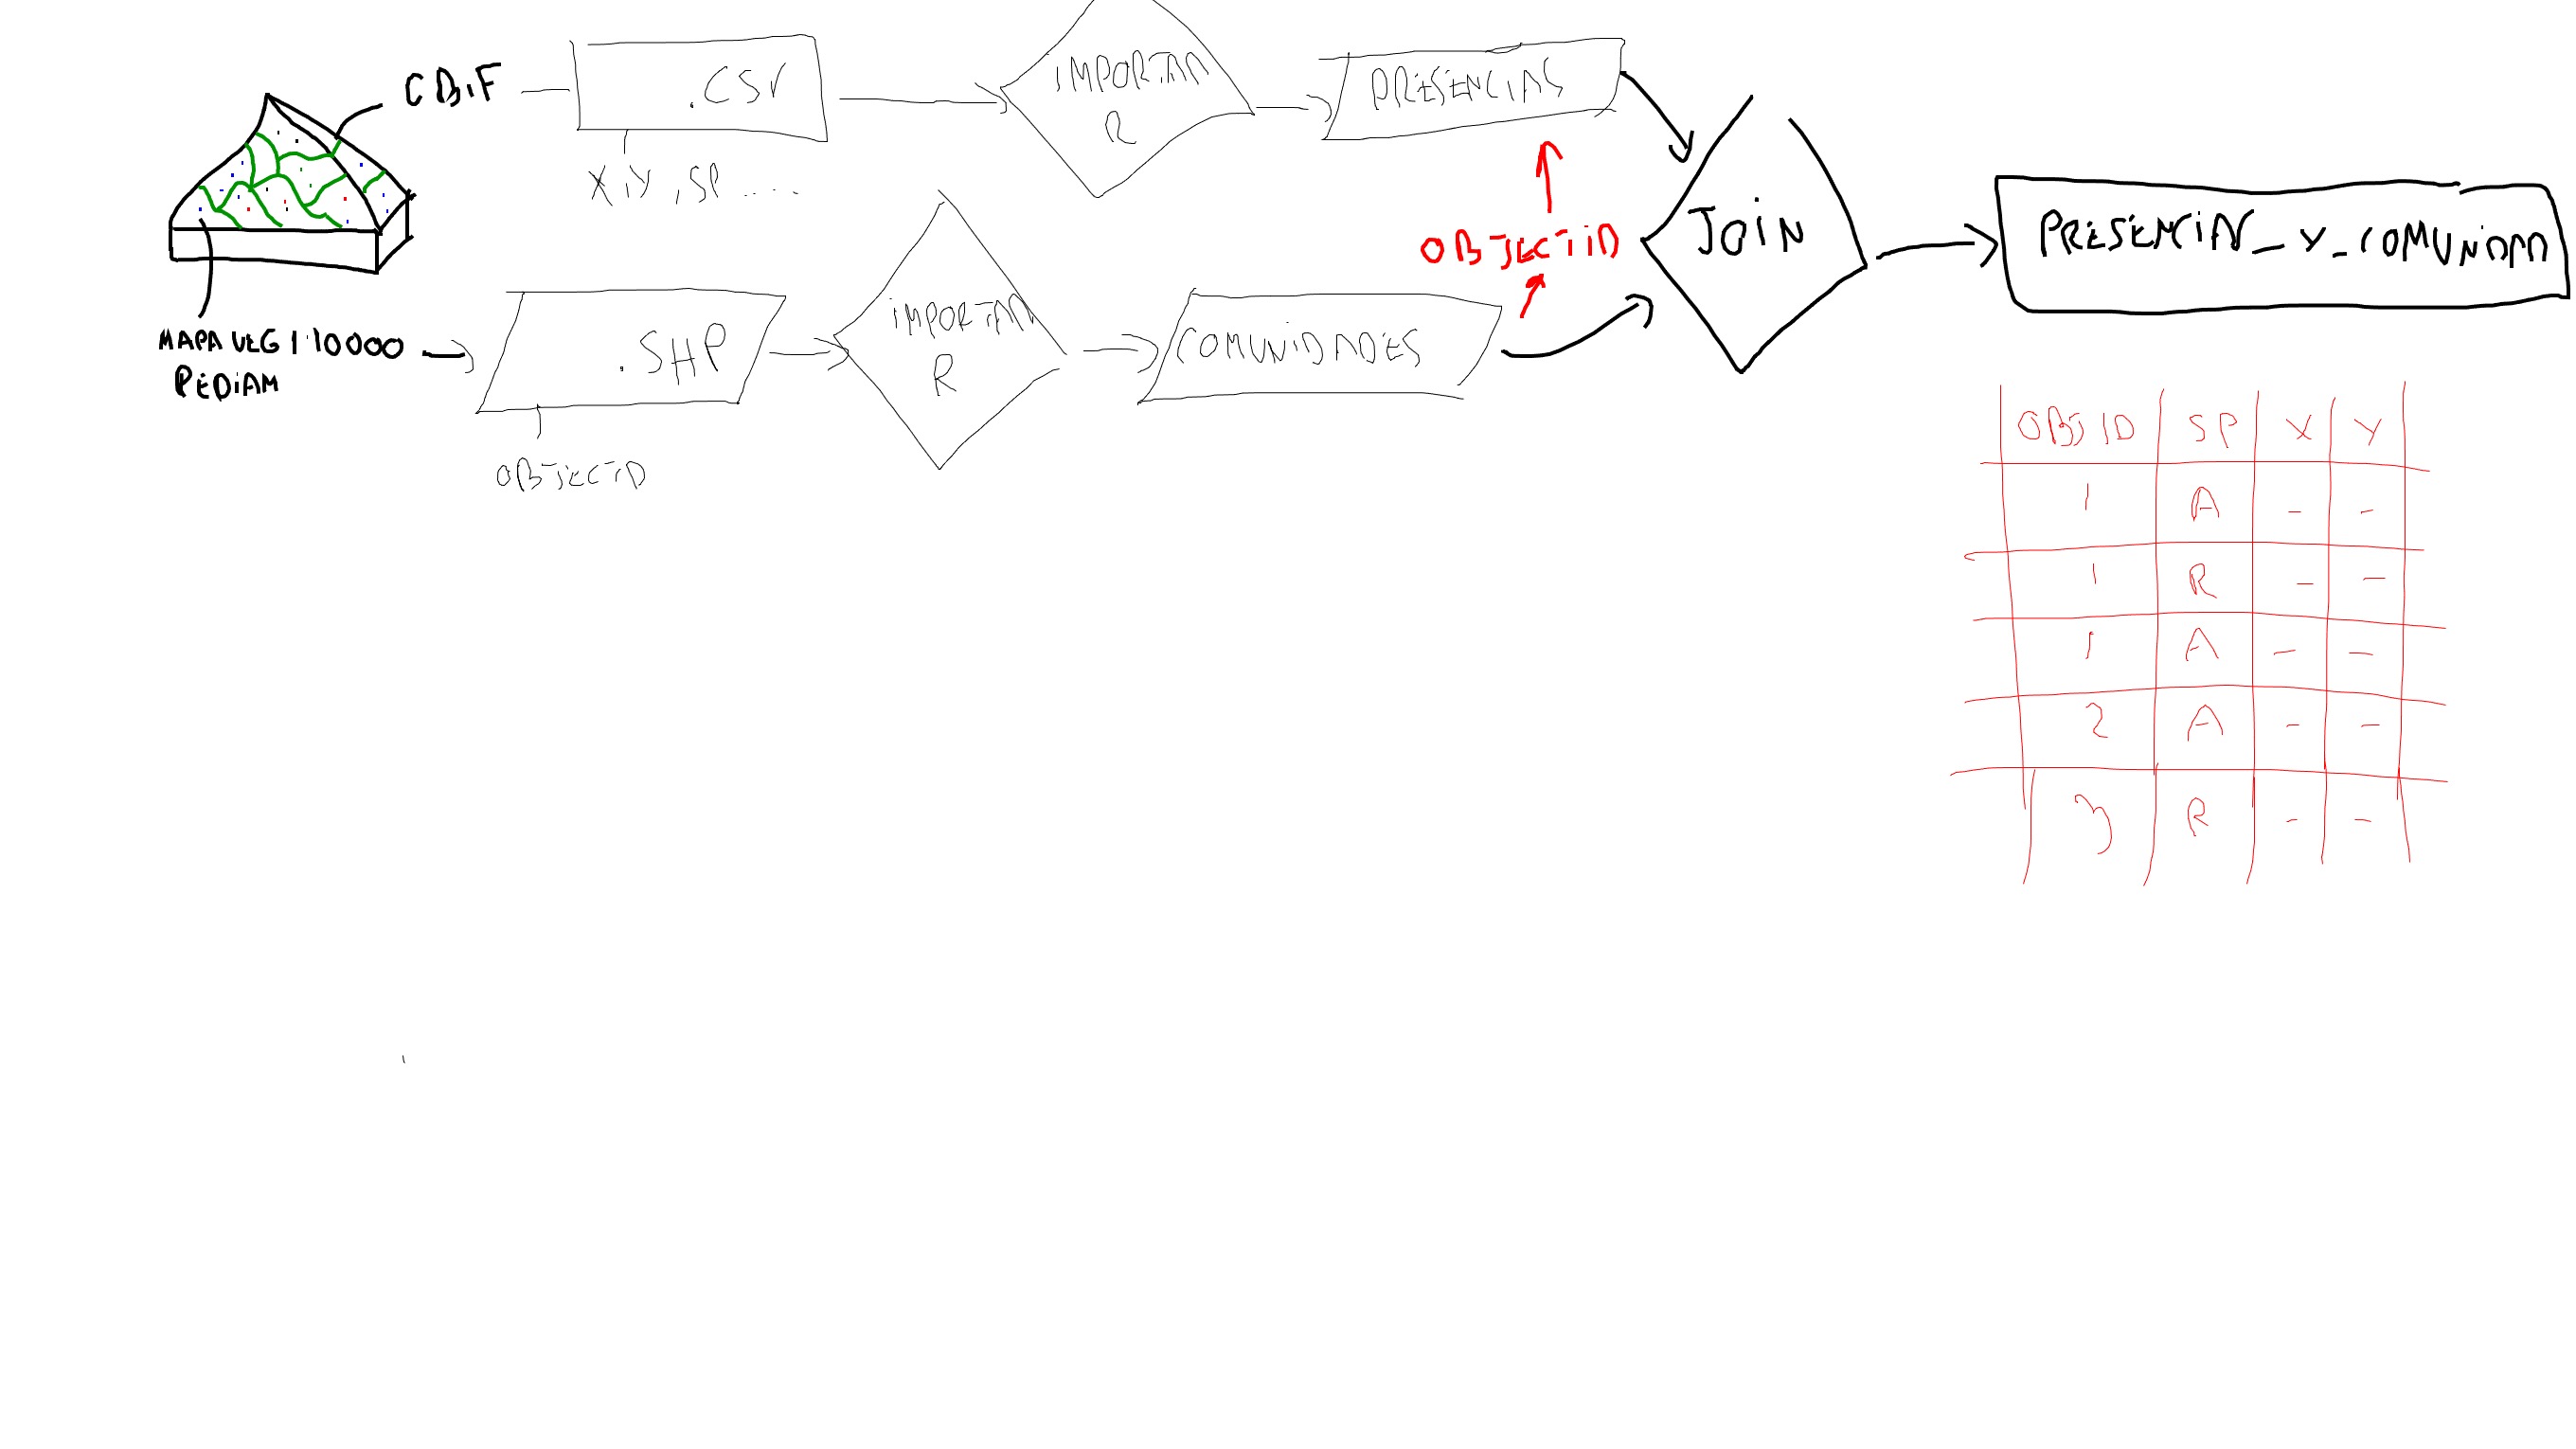 CBiF
.CSV
X,Y,SP....
IMPORTAR
R
PRESENCIAS
MAPA VEG 1:10000
PEDIAM
.SHP
OBJECTID
iMPORTAR
R
COMUNiDADES
OBJECTiD
JOiN
PRESENCiA_Y_COMUNiDAD
OBJID SP X Y
1 A - -
1 R - -
1 A - -
2 A - -
3 R - -